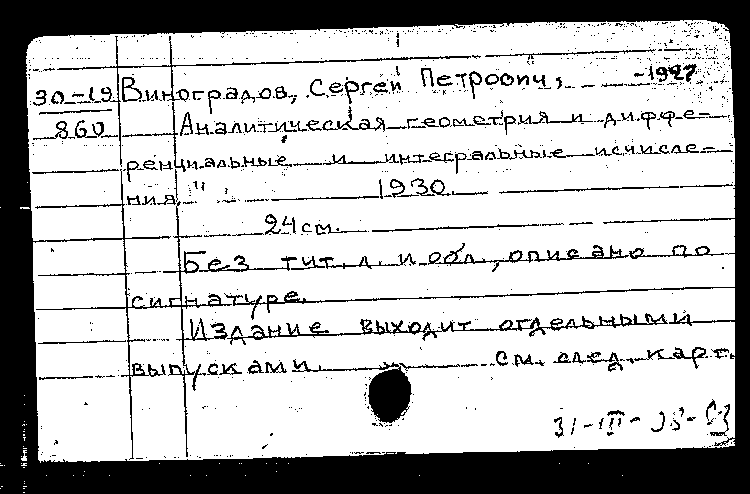 30-19 Виноградов, Сергей Петрович, -1927
860 Аналитическая геометрия и диффе-
ренциальные и интегральные исчисле-
ния." 1930.
24 см.
Без тит. л. и обл., описано по
сигнатуре.
Издание выходит отдельными
выпусками. см. след. карт.
31-III-